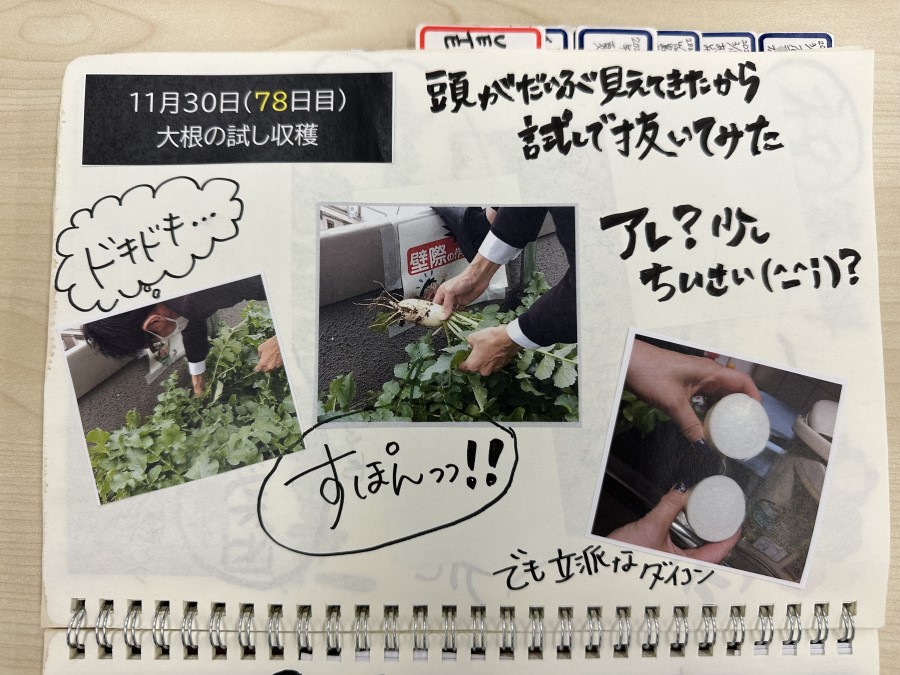 11月30日(78日目)
大根の試し収穫
頭がだいぶ見えてきたから
試しで抜いてみた
ドキドキ…
アレ?少し
ちいさい(^_^;)?
壁際の
すぽんっっ!!
でも立派なダイコン